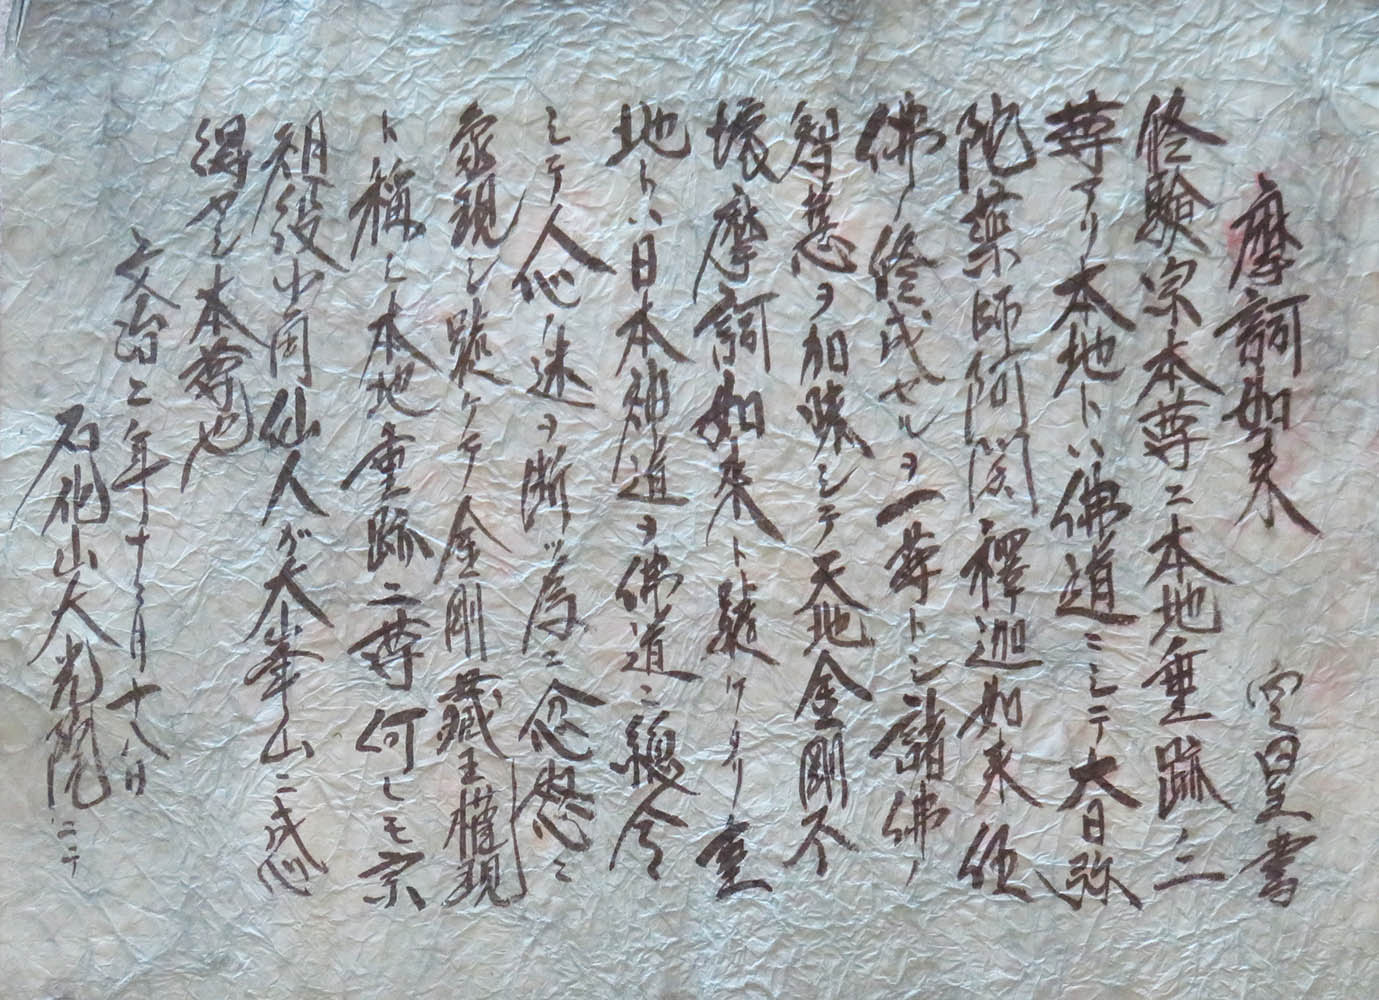 摩訶如来
修験宗本尊ニ本地垂跡ノ二
尊アリ本地トハ佛道ミシテ大日弥
陀薬師阿閦釋迦如来
佛ノ修成セルヲ一尊トシ諸佛ノ
智慧ヲ加味シテ天地金剛不
壊摩訶如来ト號ケタリ垂
地トハ日本神道ヲ佛道ニ
シテ人心迷ヲ断ツ為ニ忿怒ミ
現シ號ケテ金剛藏王權現
ト称し本地重跡二尊何レモ宗
祖役小角仙人ガ大峯山ニ成
得セシ本尊也
文治二年十二月十八日
石他山大光院ニテ